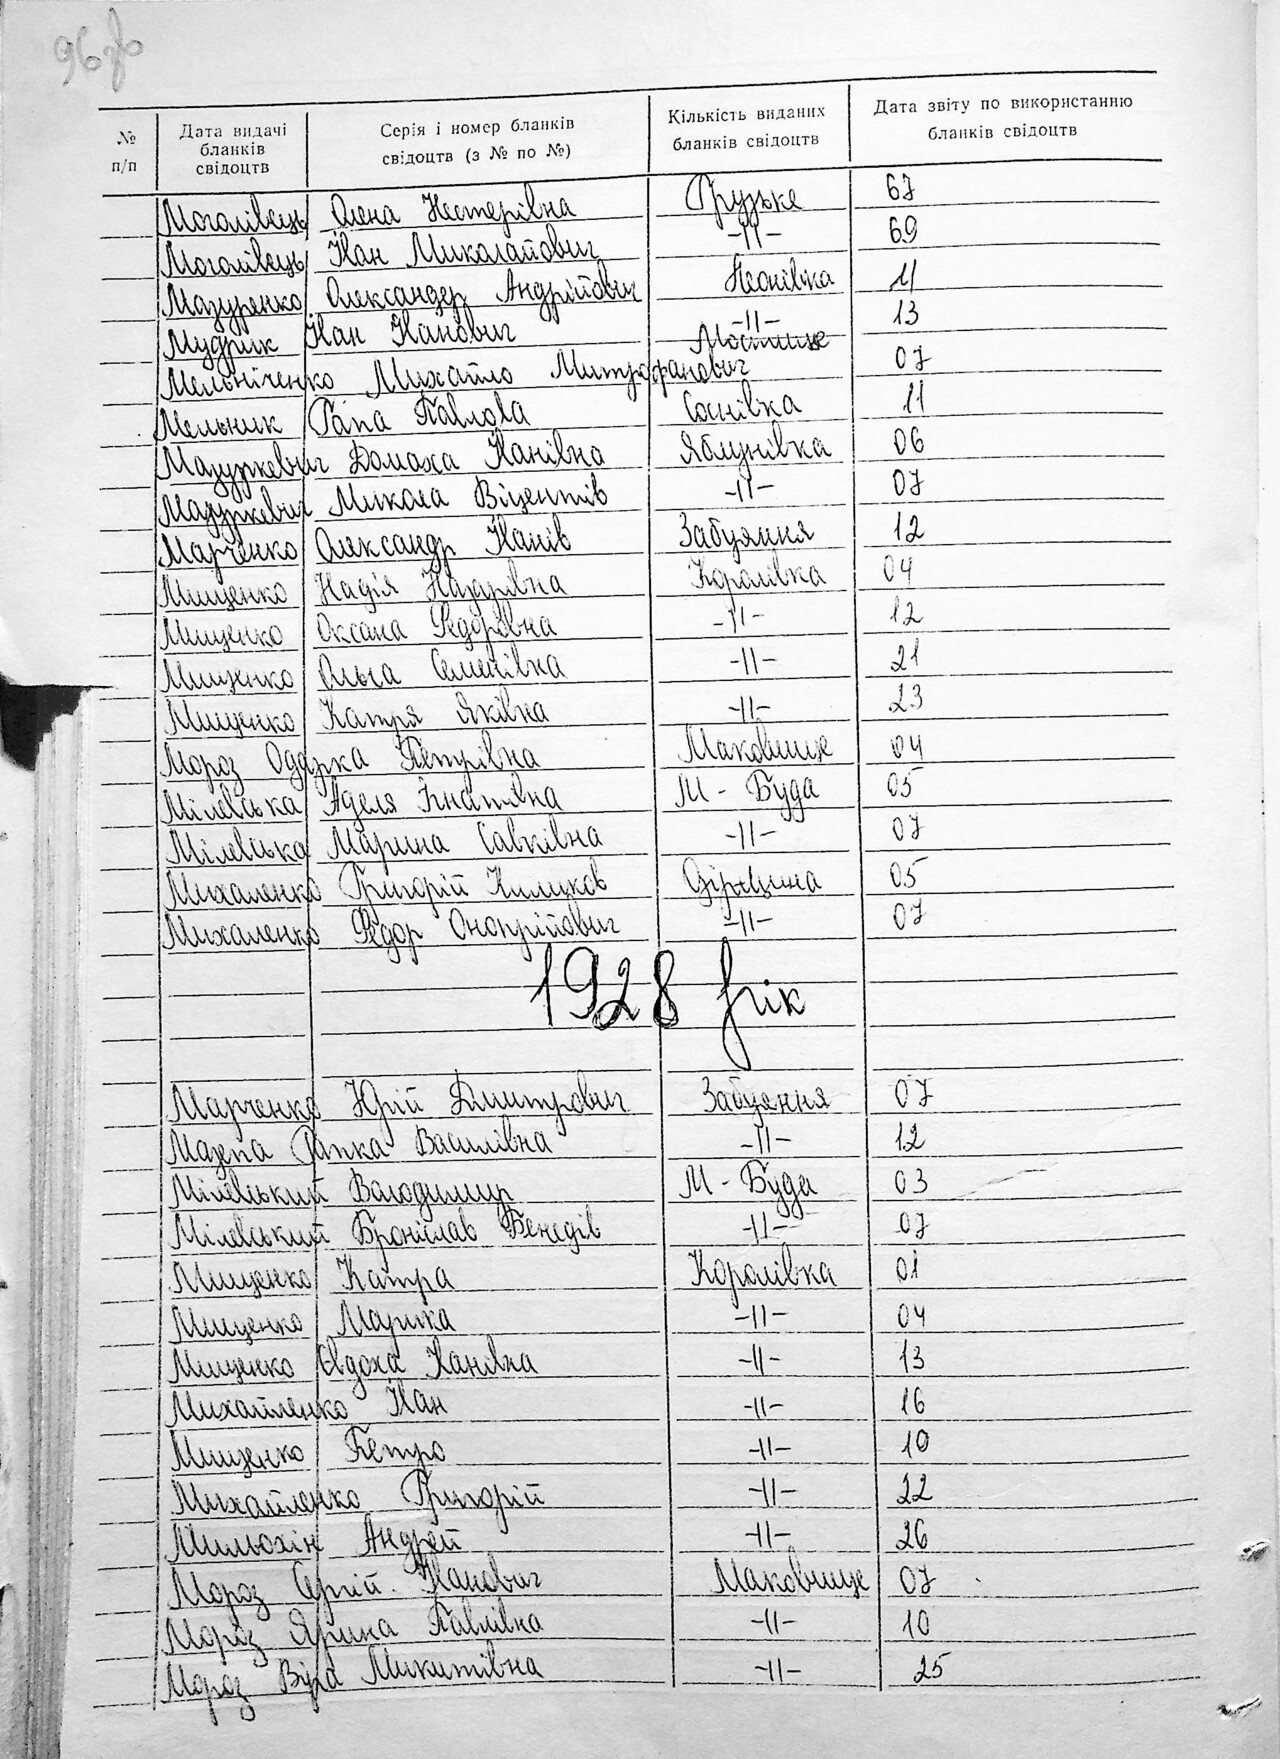 96 зв
№ п/п | Дата видачі бланків свідоцтв | Серія і номер бланків свідоцтв (з № по №) | Кількість виданих бланків свідоцтв | Дата звіту по використанню бланків свідоцтв
Моголівець Олена Нестерівна Грузьке 67
Моголівець Іван Миколайович -//- 69
Мазуренко Олександер Андрійович Леонівка 11
Мудрик Іван Іванович -//- 13
Мельніченко Михайло Митрофанович Мостище 07
Мельник Гапа Павлова Соснівка 11
Мазуркевич Домаха Іванівна Яблунівка 06
Мазуркевич Микола Віцентів -//- 07
Марченко Олександр Іванів Забуяння 12
Мищенко Надія Назарівна Королівка 04
Мищенко Оксана Федорівна -//- 12
Мищенко Ольга Семенівка -//- 21
Мищенко Катря Яківна -//- 23
Мороз Одарка Петрівна Маковище 04
Мілевська Аделя Ігнатівна М - Буда 05
Мілевська Марина Савківна -//- 07
Михаленко Григорій 05
Михаленко Федор Онопрійович -//- 07
1928 рік
Марченко Юрій Дмитрович Забуяння 07
Мазепа Гапка Василівна -//- 12
Мілевський Володимир М - Буда 03
Мілевський Броніслав Бенедів -//- 07
Мищенко Катра Королівка 01
Мищенко Марика -//- 04
Мищенко Євдоха Іванівна -//- 13
Михайленко Іван -//- 16
Мищенко Петро -//- 10
Михайленко Григорій -//- 22
Мильохін Андрей -//- 26
Мороз Сергій Іванович Маковище 07
Мороз Ярина Павлівна -//- 10
Мороз Віра Микитівна -//- 25